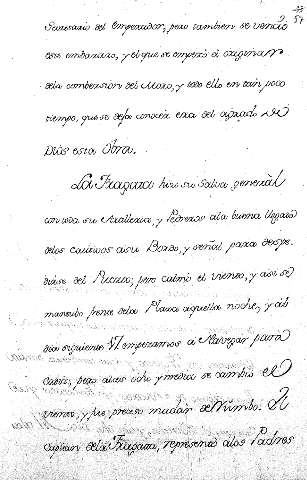 57
Secretario del Emperador, pero tambien se vencio
este embarazo, y el que se empezó á originar
dela combersion del Moro, y todo ello en tan poco
tiempo, que se deja conocer era del agrado de
Dios esta Obra.
La Fragata hizo su salva general
con toda su Artilleria, y Pedreros ala buena llegada
delos cautivos asu Bordo, y señal para despe-
dirse del Puerto; pero calmó el viento, y asi se
mantubo frente dela Plaza aquella noche, y al
dia siguiente VI empezamos a Navegar para
Cadiz, pero alas ocho y media se cambió el
viento, y fue preciso mudar de Rumbo. El
Capitan dela Fragata, representó alos Padres